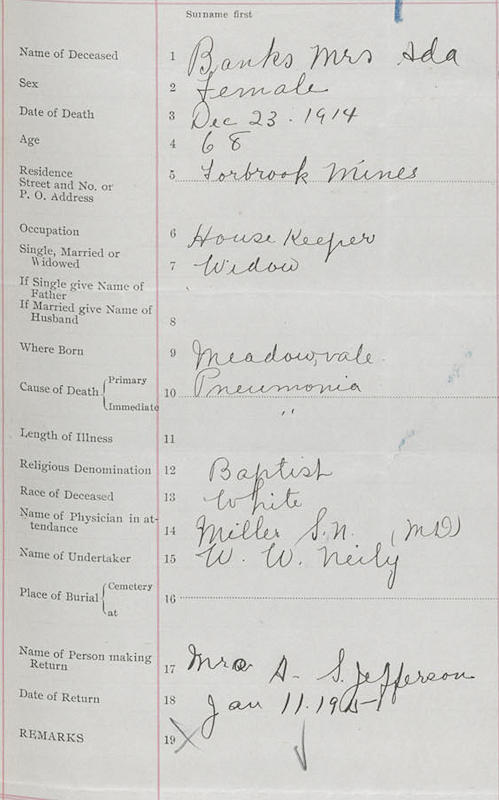 Surname first
Name of Deceased 1 Banks Mrs Ada
Sex 2 Female
Date of Death 3 Dec 23. 1914
Age 4 68
Residence
Street and No. or
P. O. Address 5 Torbrook Mines
Occupation 6 House Keeper
Single, Married or
Widowed 7 Widow
If Single give Name of
Father
If Married give Name of
Husband 8
Where Born 9 Meadowvale
Cause of Death { Primary 10 Pneumonia
Immediate "
Length of Illness 11
Religious Denomination 12 Baptist
Race of Deceased 13 White
Name of Physician in at-
tendance 14 Miller S. N. (MD)
Name of Undertaker 15 W. W. Neily
Place of Burial { Cemetery 16
at
Name of Person making
Return 17 Mrs A. S. Jefferson
Date of Return 18 Jan 11. 1915
REMARKS 19